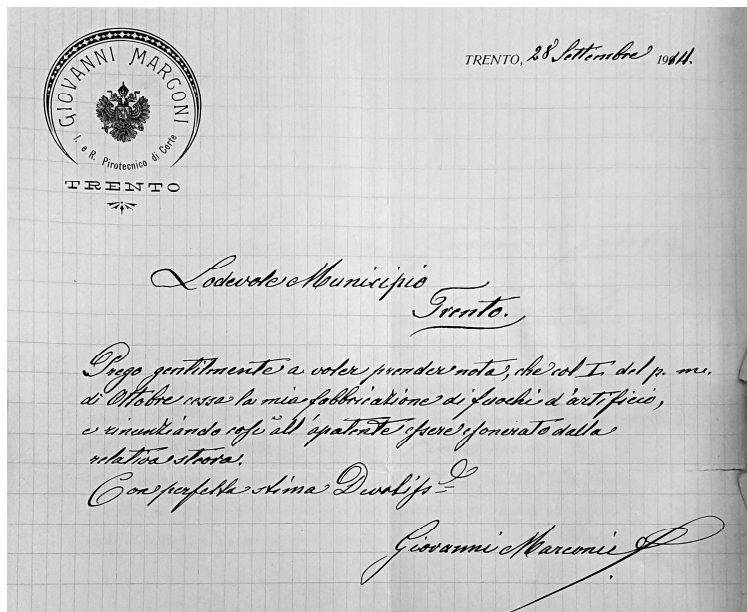 GIOVANNI MARGONI
I. e R. Pirotecnico di Corte
TRENTO
TRENTO, 28 Settembre 1914.
Lodevole Municipio
Trento.
Prego gentilmente a voler prender nota, che col I. del p. m.
di Ottobre cessa la mia fabbricazione di fuochi d'artificio,
e rinunziando così all'apatente essere esonerato dalla
relativa steora.
Con perfetta stima Devotiss.
Giovanni Marconi